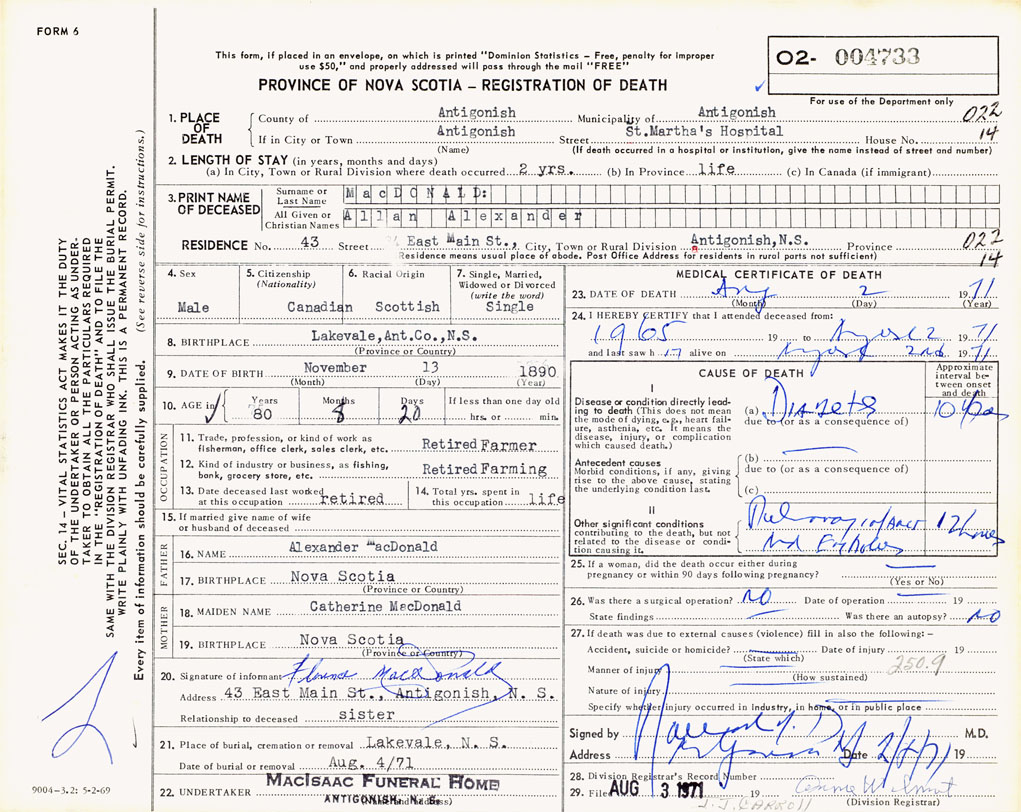 FORM 6
This form, if placed in an envelope, on which is printed "Dominion Statistics – Free, penalty for improper
use $50," and properly addressed will pass through the mail "FREE"
PROVINCE OF NOVA SCOTIA – REGISTRATION OF DEATH
02- 004733
For use of the Department only
SEC. 14 – VITAL STATISTICS ACT MAKES IT THE DUTY
OF THE UNDERTAKER OR PERSON ACTING AS UNDER-
TAKER TO OBTAIN ALL THE PARTICULARS REQUIRED
IN THE "REGISTRATION OF DEATH" AND TO FILE THE
SAME WITH THE DIVISION REGISTRAR WHO SHALL ISSUE THE BURIAL PERMIT.
WRITE PLAINLY WITH UNFADING INK. THIS IS A PERMANENT RECORD.
Every item of information should be carefully supplied. (See reverse side for instructions.)
1. PLACE OF DEATH
County of Antigonish Municipality of Antigonish 022
If in City or Town Antigonish Street St.Martha's Hospital House No. 14
(Name) (If death occurred in a hospital or institution, give the name instead of street and number)
2. LENGTH OF STAY (in years, months and days)
(a) In City, Town or Rural Division where death occurred 2 yrs. (b) In Province life (c) In Canada (if immigrant)
3. PRINT NAME OF DECEASED
Surname or Last Name MacDONALD:
All Given or Christian Names Allan Alexander
RESIDENCE No. 43 Street East Main St., City, Town or Rural Division Antigonish,N.S. Province 022
Residence means usual place of abode. Post Office Address for residents in rural parts not sufficient) 14
4. Sex
Male
5. Citizenship
(Nationality)
Canadian
6. Racial Origin
Scottish
7. Single, Married,
Widowed or Divorced
(write the word)
Single
8. BIRTHPLACE Lakevale,Ant.Co.,N.S.
(Province or Country)
9. DATE OF BIRTH November 13 1890
(Month) (Day) (Year)
10. AGE in Years 80 Months 8 Days 20 If less than one day old
hrs. or min.
OCCUPATION
11. Trade, profession, or kind of work as
fisherman, office clerk, sales clerk, etc. Retired Farmer
12. Kind of industry or business, as fishing,
bank, grocery store, etc. Retired Farming
13. Date deceased last worked
at this occupation retired
14. Total yrs. spent in
this occupation life
15. If married give name of wife
or husband of deceased
FATHER
16. NAME Alexander MacDonald
17. BIRTHPLACE Nova Scotia
(Province or Country)
MOTHER
18. MAIDEN NAME Catherine MacDonald
19. BIRTHPLACE Nova Scotia
(Province or Country)
20. Signature of informant MacDonald
Address 43 East Main St., Antigonish, N. S.
Relationship to deceased sister
21. Place of burial, cremation or removal Lakevale, N. S.
Date of burial or removal Aug. 4/71
22. UNDERTAKER MacIsaac Funeral Home
ANTIGONISH, N. S.
9004–3.2: 5-2-69
MEDICAL CERTIFICATE OF DEATH
23. DATE OF DEATH Aug 2 1971
(Month) (Day) (Year)
24. I HEREBY CERTIFY that I attended deceased from:
1965 19 to August 2 1971
and last saw h alive on August 2nd 1971
CAUSE OF DEATH
Approximate interval between onset and death
I
Disease or condition directly lead-
ing to death (This does not mean
the mode of dying, e.g., heart fail-
ure, asthenia, etc. It means the
disease, injury, or complication
which caused death.)
(a) Diabetes
due to (or as a consequence of)
Antecedent causes
Morbid conditions, if any, giving
rise to the above cause, stating
the underlying condition last.
(b)
due to (or as a consequence of)
(c)
II
Other significant conditions
contributing to the death, but not
related to the disease or condi-
tion causing it.
12 hours
25. If a woman, did the death occur either during
pregnancy or within 90 days following pregnancy?
(Yes or No)
26. Was there a surgical operation? NO Date of operation 19
State findings Was there an autopsy? NO
27. If death was due to external causes (violence) fill in also the following: –
Accident, suicide or homicide? Date of injury 19
(State which)
250.9
Manner of injury
(How sustained)
Nature of injury
Specify whether injury occurred in Industry, in home, or in public place
Signed by M.D.
Address Date 19
28. Division Registrar's Record Number
29. Filed AUG 3 1971 19
(Division Registrar)
J.J. CARROLL